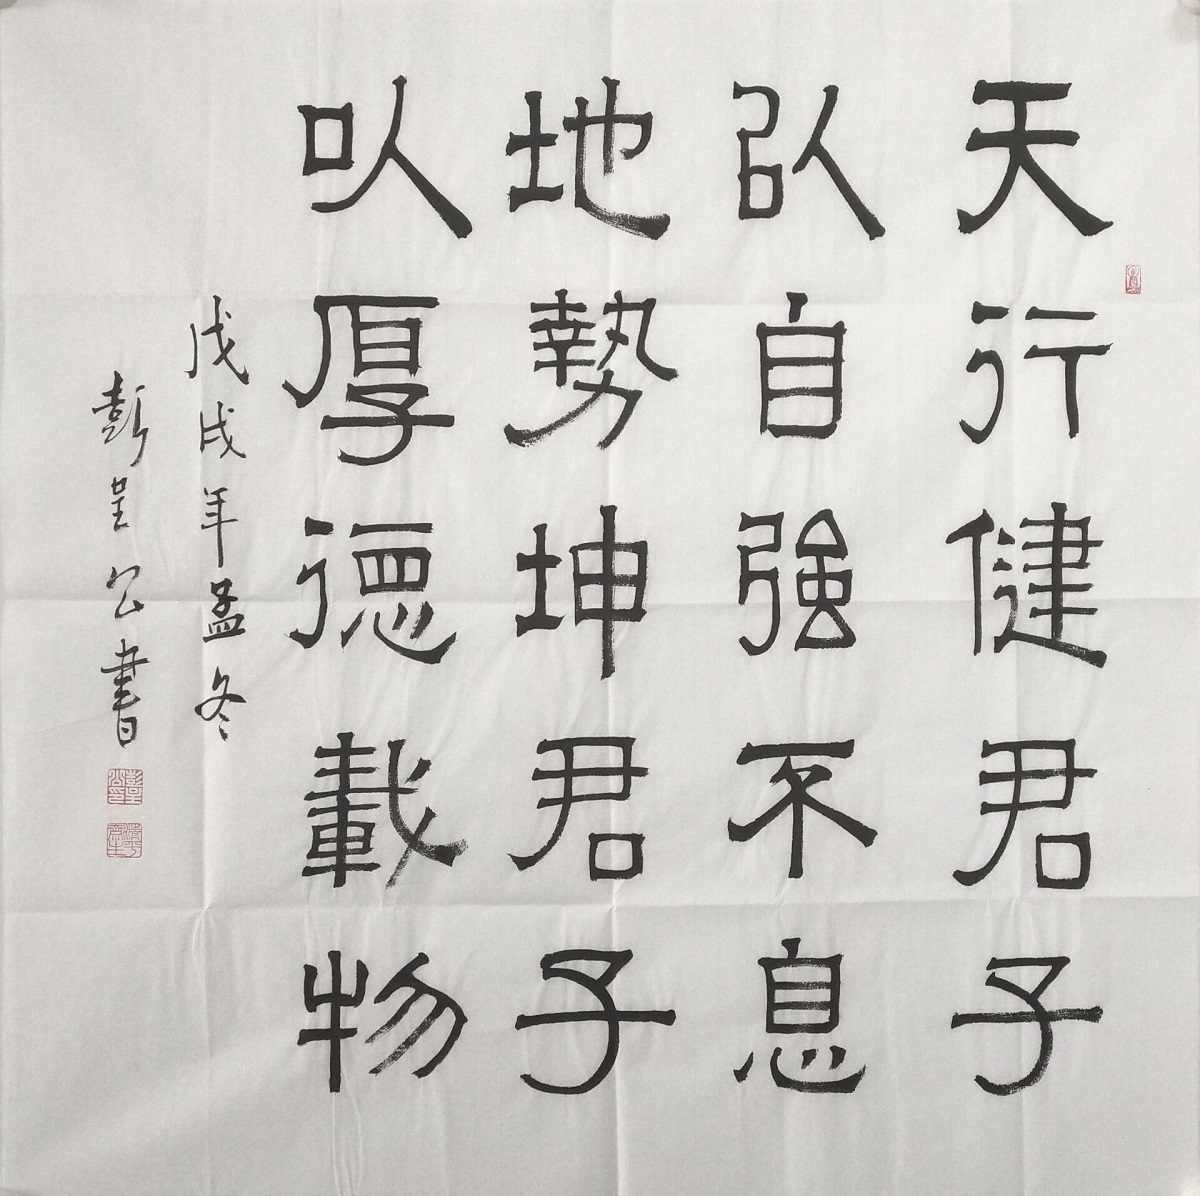 天行健君子
以自強不息
地勢坤君子
以厚德載物
戊戌年孟冬
彭呈公書